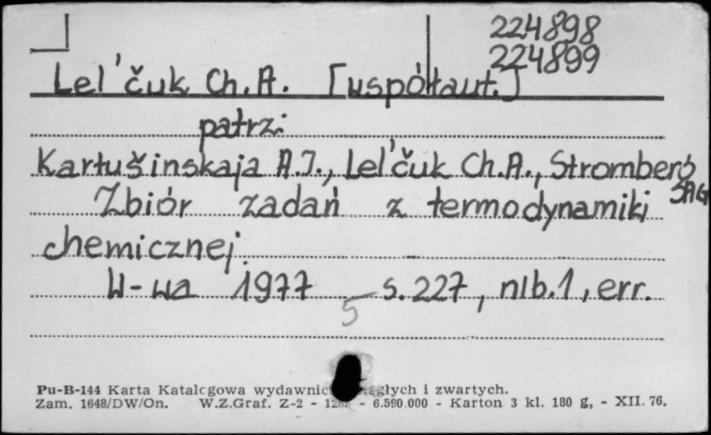 224898
224899
Lel'čuk Ch.A. [współaut.]
patrz:
Kartušinskaja A.I., Lel'čuk Ch.A., Stromberg
Zbiór zadań z termodynamiki SAG
chemicznej.
W-wa 1977 s. 227, nlb. 1, err.
5
Pu-B-144 Karta Katalogowa wydawnic ciągłych i zwartych.
Zam. 1648/DW/On. W.Z.Graf. Z-2 - - 6.590.000 - Karton 3 kl. 180 g, - XII. 76.